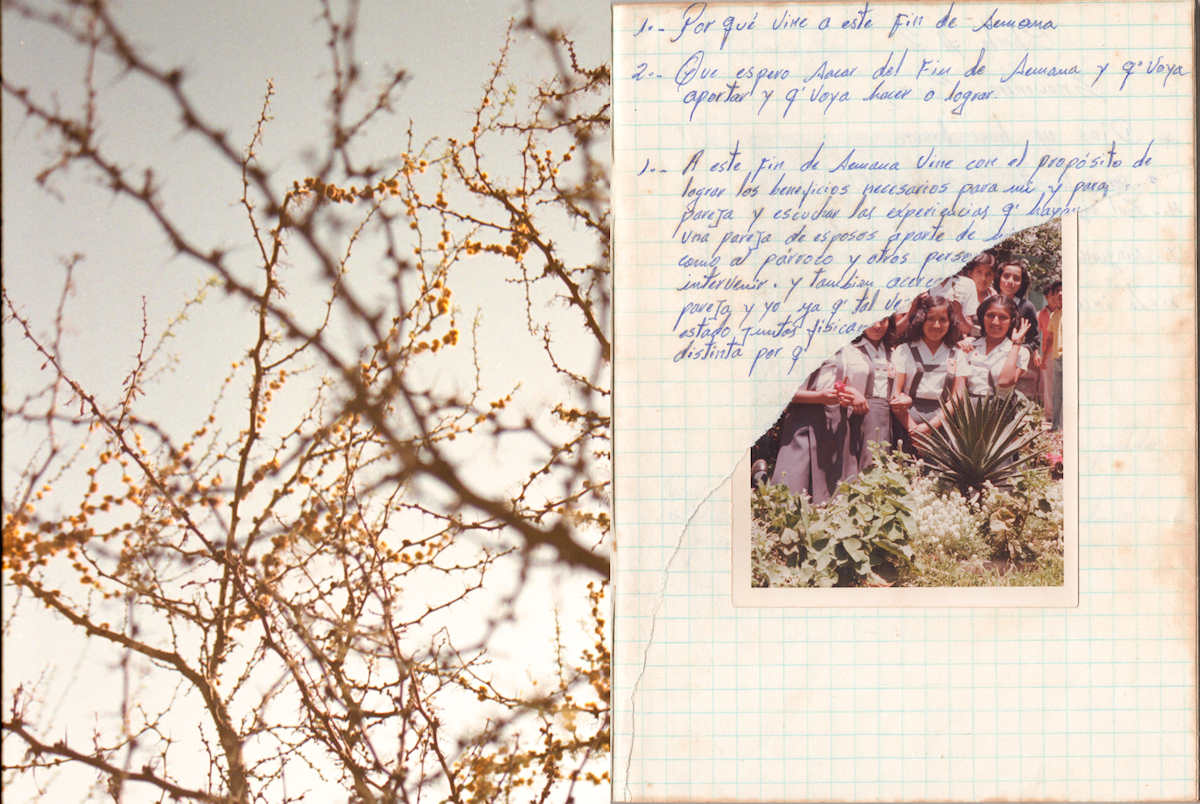 1.- Por qué vine a este Fin de Semana
2.- Que espero Sacar del Fin de Semana y q' voy a
aportar y q' voy a hacer o lograr.
1.- A este Fin de Semana vine con el propósito de
lograr los beneficios necesarios para mi y para
pareja y escuchar las experiencias q' hayan
una pareja de esposos aparte de
como al párroco y otros perso
intervenir. y tambien acerca
pareja y yo ya q' tal ve
estado juntos
distinta por q'